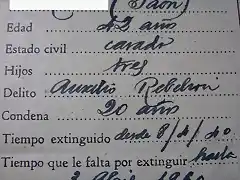 (Jaén)
Edad 42 años
Estado civil casado
Hijos tres
Delito Auxilio Rebelión
Condena 20 años
Tiempo extinguido desde 8/4/40
Tiempo que le falta por extinguir hasta
1960